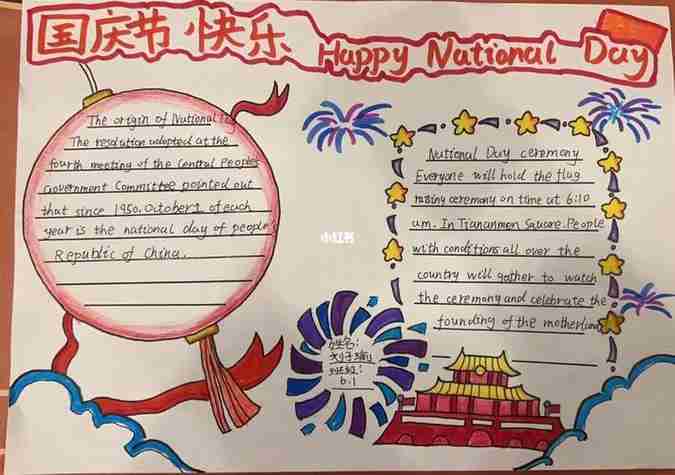 国庆节 快乐 Happy National Day
The origin of National
The resolution adopted at the
fourth meeting of the Central Peoples
Government Committee pointed out
that since 1950. October 1 of each
year is the national day of people
Republic of China.
小红书
National Day ceremony
Everyone will hold the flag
raising ceremony on time at 6:10
am. In Tiananmen Square. People
with conditions all over the
country will gather to watch
the ceremony and celebrate the
founding of the motherland
姓名:
刘子瑜
班级:
6.1